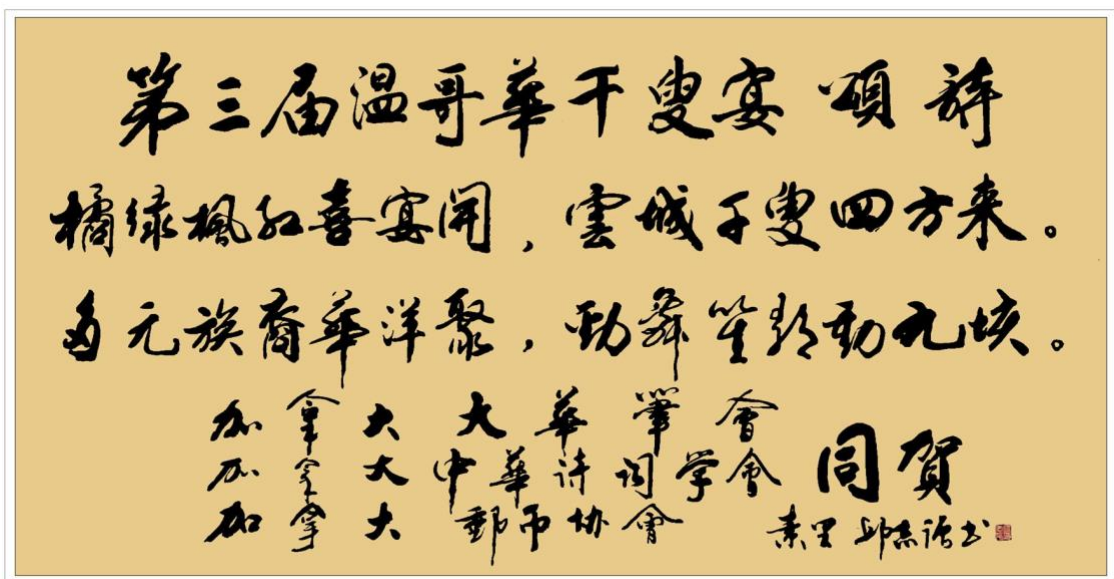 第三届温哥華千叟宴 頌辞
橘绿楓红喜宴開，雲城千叟四方来。
多元族裔華洋聚，勁舞笙歌動九垓。
加拿大 大華筆會
加拿大 中華诗词学會
加拿大 郵币协會
同賀
素里 邱志 书